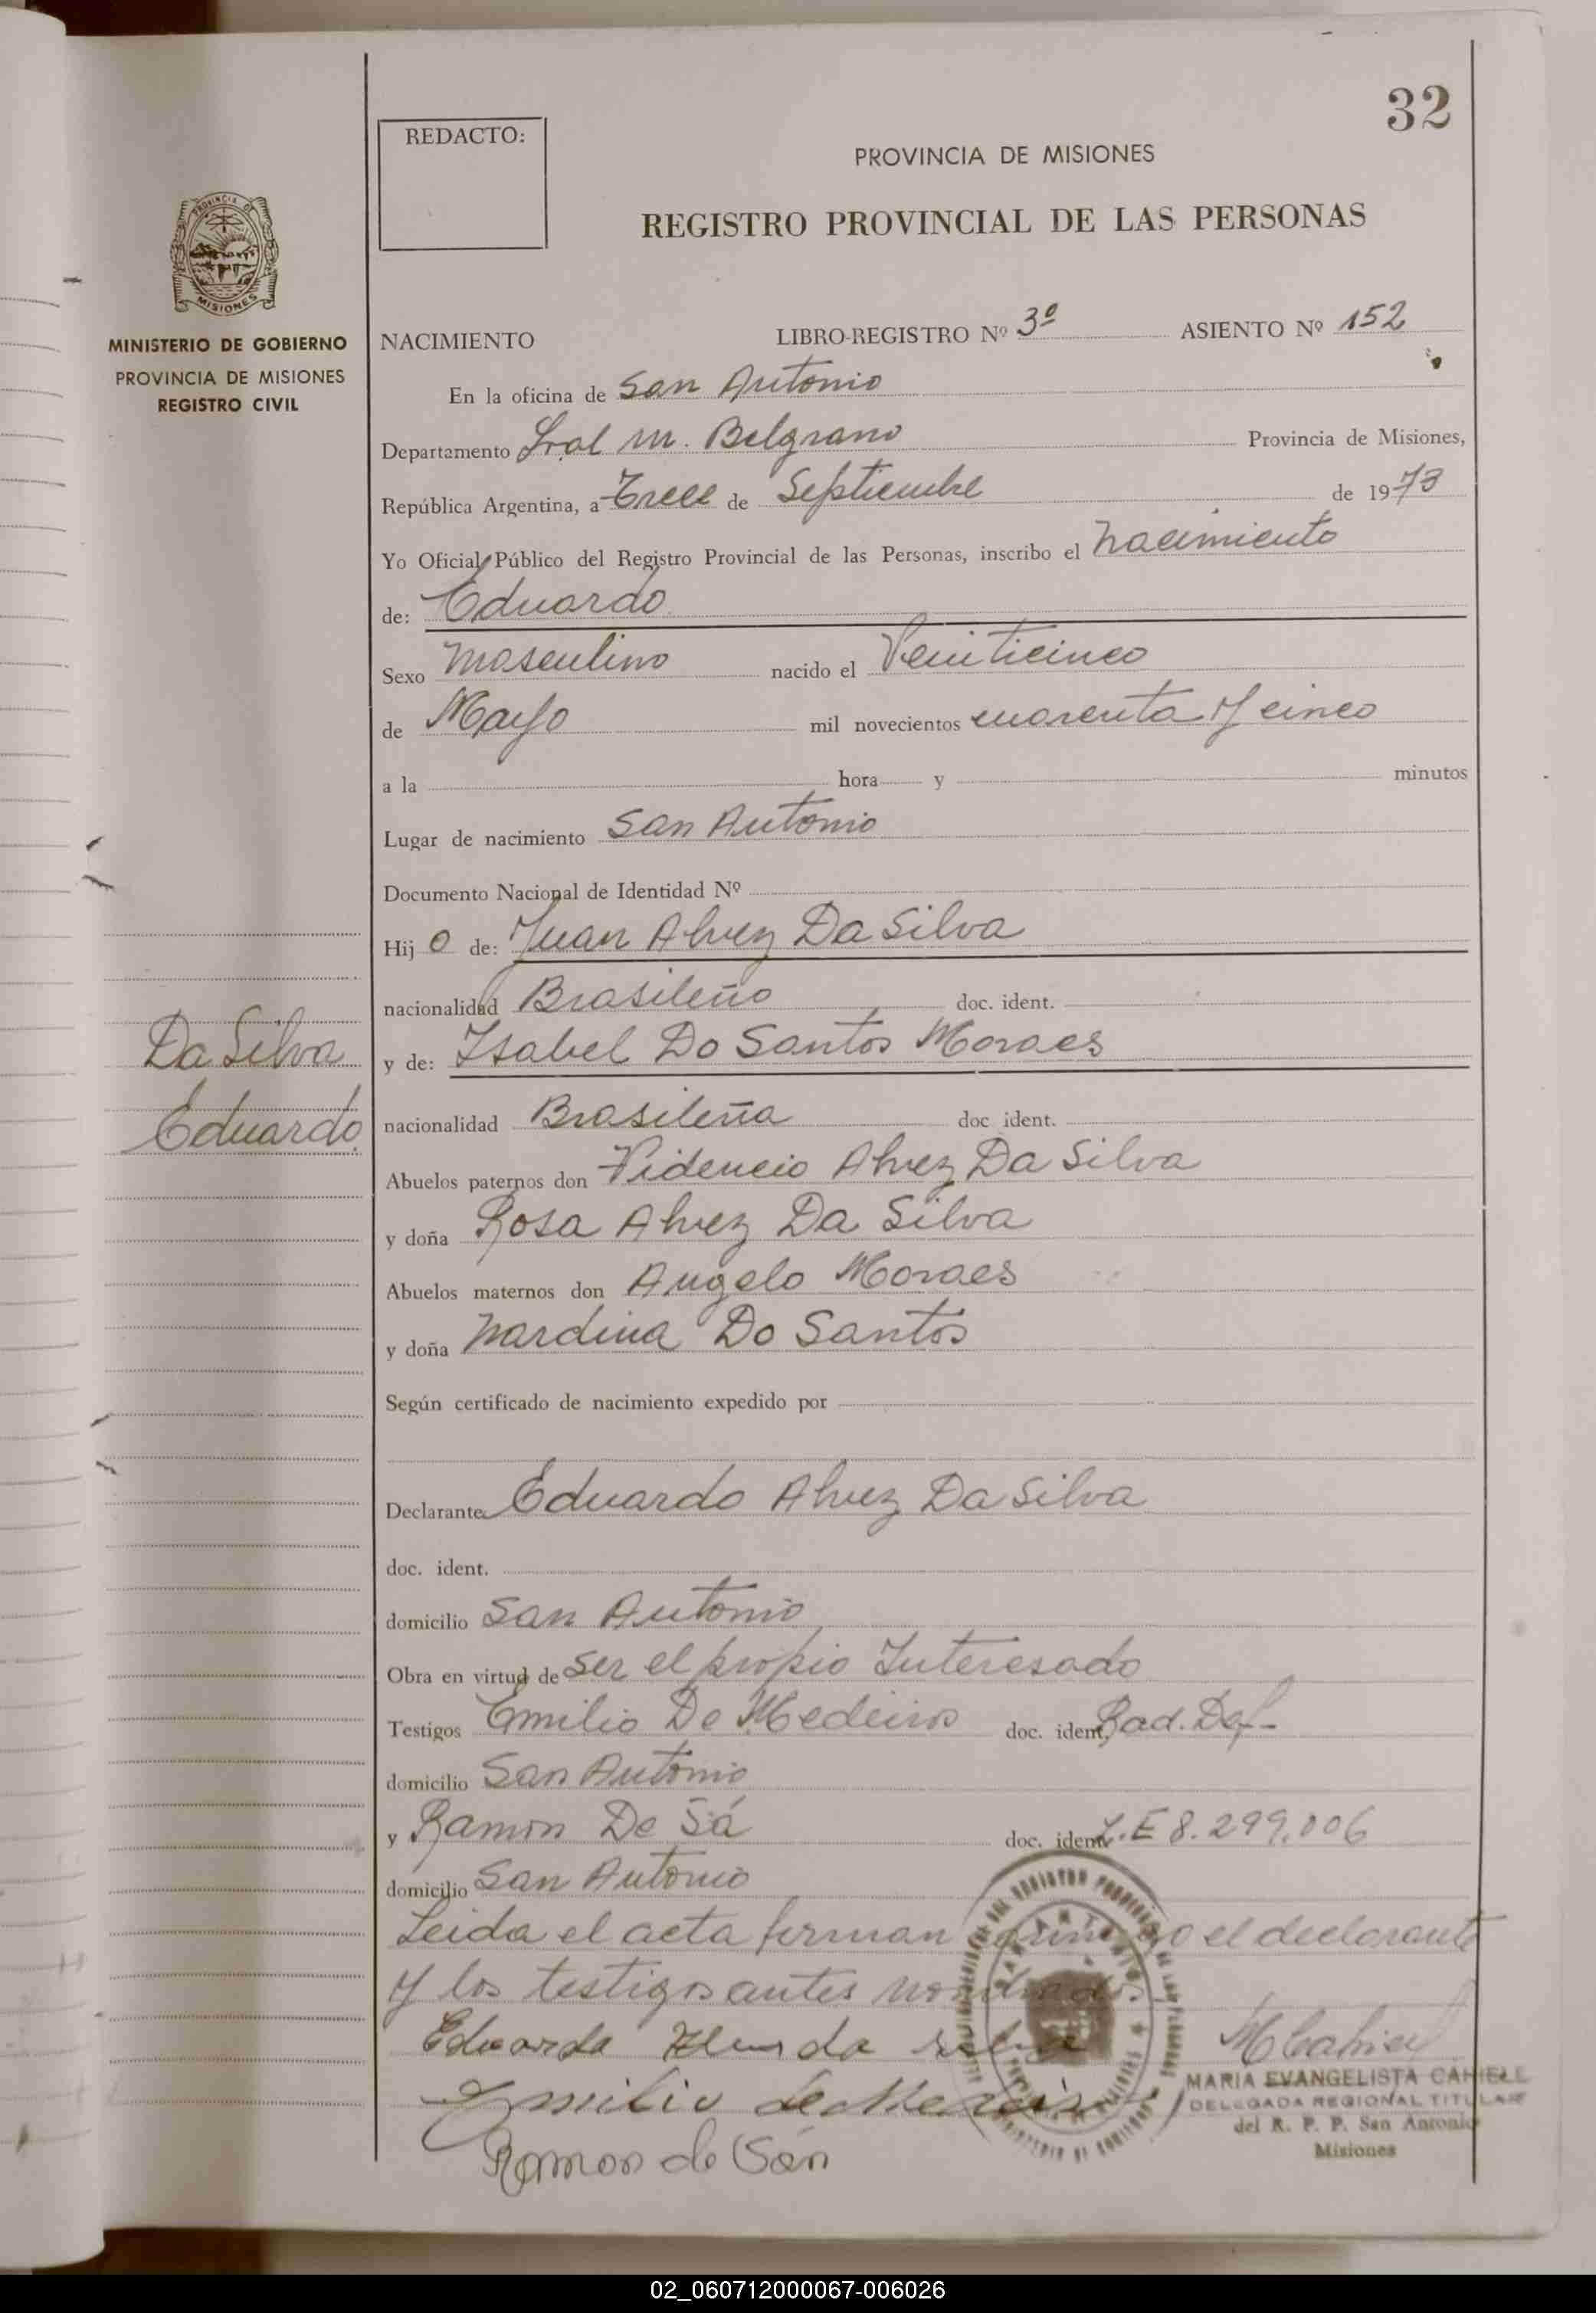 32
REDACTO:
PROVINCIA DE MISIONES
REGISTRO PROVINCIAL DE LAS PERSONAS
MINISTERIO DE GOBIERNO
PROVINCIA DE MISIONES
REGISTRO CIVIL
NACIMIENTO LIBRO-REGISTRO Nº 3º ASIENTO Nº 152
En la oficina de San Antonio
Departamento Gral M. Belgrano Provincia de Misiones,
República Argentina, a Trece de Septiembre de 1973
Yo Oficial Público del Registro Provincial de las Personas, inscribo el nacimiento
de: Eduardo
Sexo masculino nacido el Veinticinco
de Mayo mil novecientos cuarenta y cinco
a la hora y minutos
Lugar de nacimiento San Antonio
Documento Nacional de Identidad Nº
Hij o de: Juan Alvez Da Silva
nacionalidad Brasileño doc. ident.
Da Silva
Eduardo
y de: Isabel Do Santos Moraes
nacionalidad Brasileña doc ident.
Abuelos paternos don Fidencio Alvez Da Silva
y doña Rosa Alvez Da Silva
Abuelos maternos don Angelo Moraes
y doña Nardina Do Santos
Según certificado de nacimiento expedido por
Declarante Eduardo Alvez Da Silva
doc. ident.
domicilio San Antonio
Obra en virtud de ser el propio Interesado
Testigos Emilio De Medeiros doc. ident. Rad. Def.-
domicilio San Antonio
y Ramon De Sá doc. ident. L.E 8.299.006
domicilio San Antonio
Leida el acta firman conmigo el declarante
y los testigos antes nombrados.
Eduardo da
Emilio de
Ramon de
MARIA EVANGELISTA CAHIELE
DELEGADA REGIONAL TITULAR
del R. P. P. San Antonio
Misiones
02_060712000067-006026